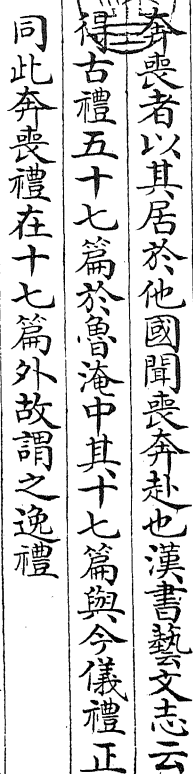 奔喪者以其居於他國聞喪奔赴也漢書藝文志云
得古禮五十七篇於魯淹中其十七篇與今儀禮正
同此奔喪禮在十七篇外故謂之逸禮